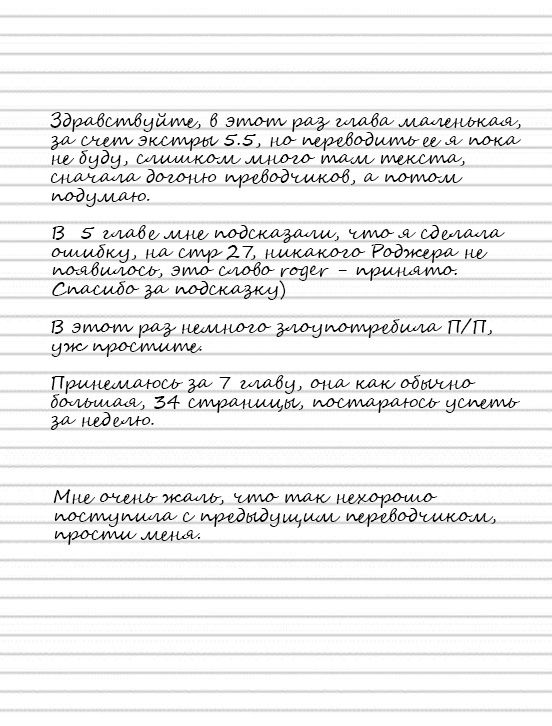 Здравствуйте, в этот раз глава маленькая,
за счет экстры 5.5, но переводить ее я пока
не буду, слишком много там текста,
сначала догоню преводчиков, а потом
подумаю.
В 5 главе мне подсказали, что я сделала
ошибку, на стр 27, никакого Роджера не
появилось, это слово roger - принято.
Спасибо за подсказку)
В этот раз немного злоупотребила П/П,
уж простите.
Принемаюсь за 7 главу, она как обычно
большая, 34 страницы, постараюсь успеть
за неделю.
Мне очень жаль, что так нехорошо
поступила с предыдущим переводчиком,
прости меня.